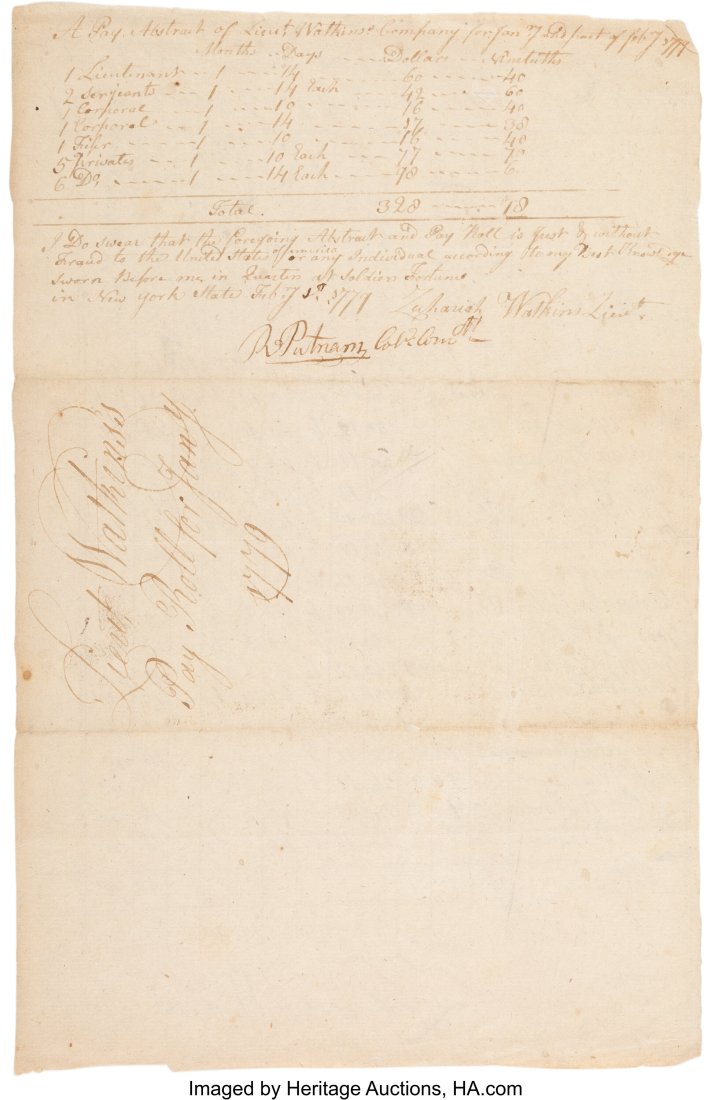 A Pay Abstract of Lieut Watkins's Company for Jan'y and part of Feb'y 1779
Months Days Dollars Ninetieths
1 Lieutenant 1 14 60 40
2 Serjeants 1 14 Each 42 60
1 Corporal 1 10 16 40
1 Corporal 1 14 17 38
1 Fifer 1 10 16 40
5 Privates 1 10 Each 77
6 Do 1 14 Each 98 6
Total. 328 18
I Do swear that the foregoing Abstract and Pay Roll is Just & without
Fraud to the United States of America or any Individual according to my Best Knowledge
Sworn Before me in Quarters at Soldiers Fortune
in New York State Feb'y 1st 1779 Zachariah Watkins Lieut.
R Putnam Col. Comdt
Lieut Watkins's
Pay Roll for Jany
1779
Imaged by Heritage Auctions, HA.com